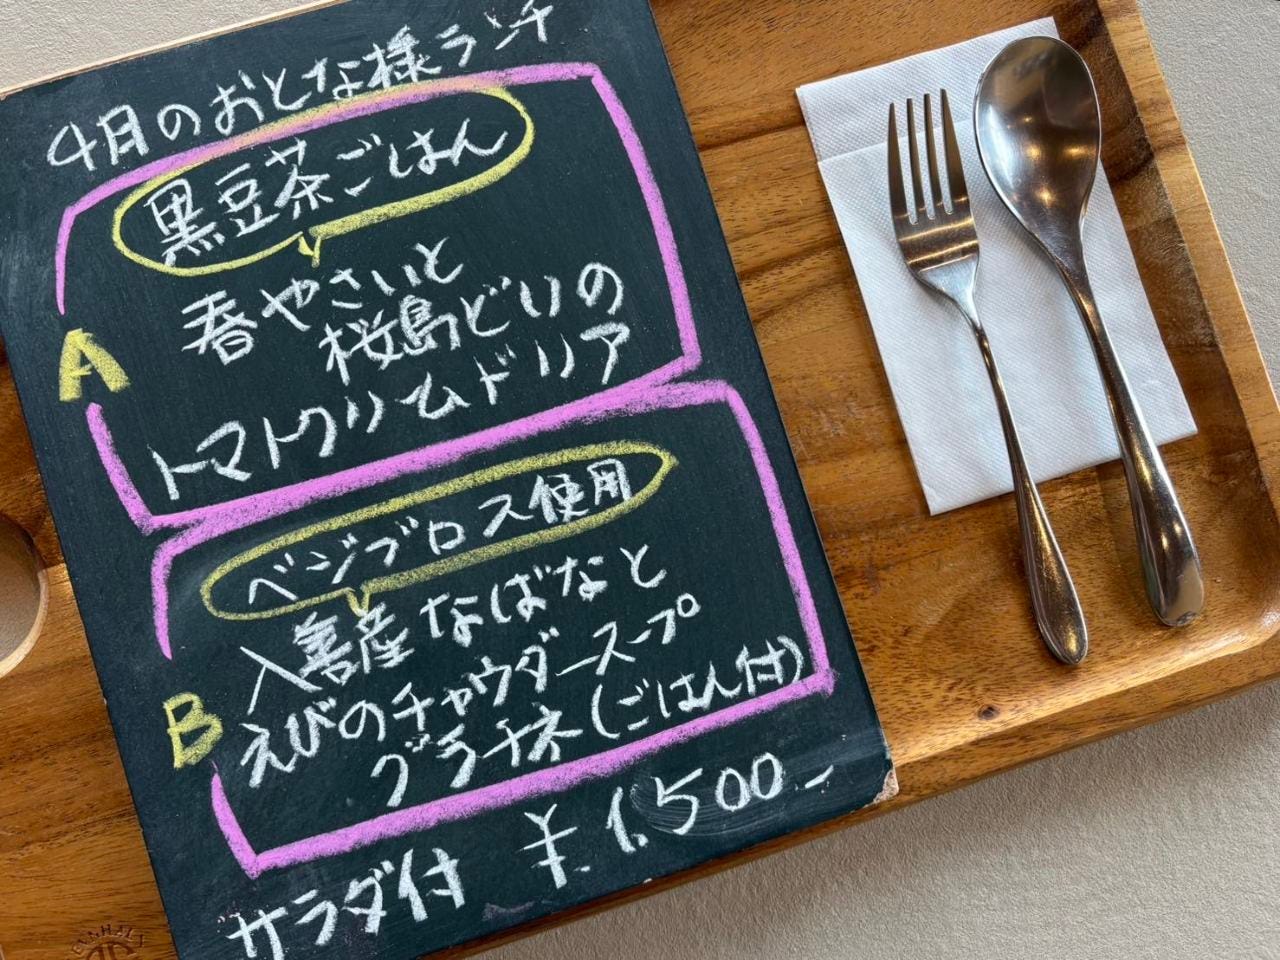 4月のおとな様ランチ
黒豆茶ごはん
A
春やさいと
桜島どりの
トマトクリームドリア
ベジブロス使用
B
入善産なばなと
えびのチャウダースープ
グラチネ(ごはん付)
サラダ付 ¥1,500-